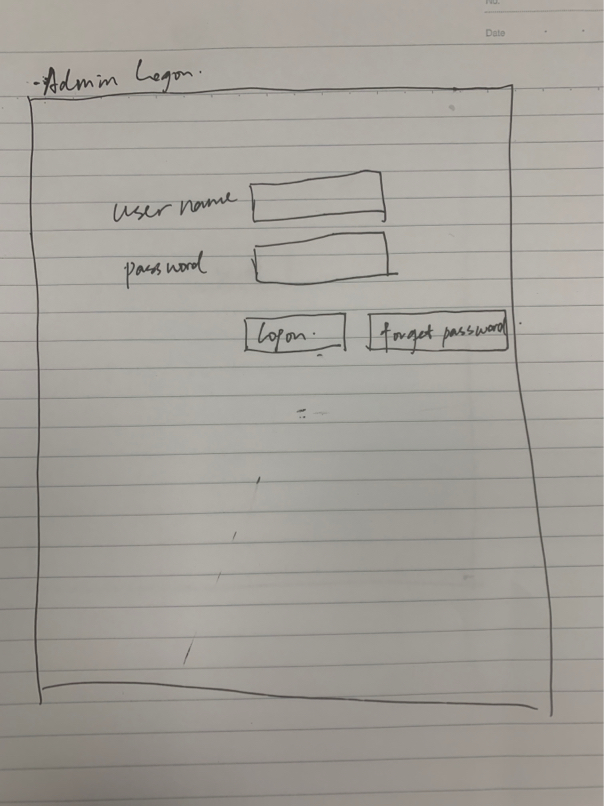 No.
Date
-Admin Logon.
user name
password
Logon.
forget password